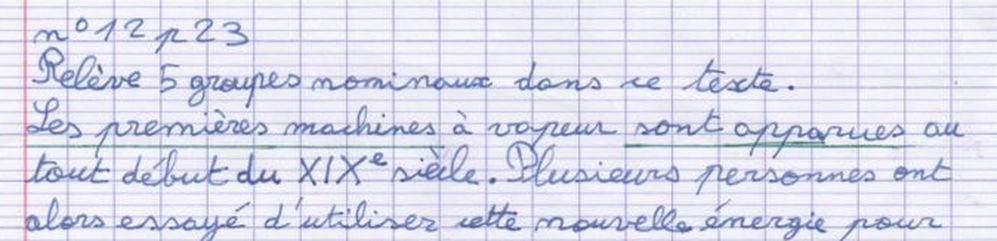 n° 12 p 23
Relève 5 groupes nominaux dans ce texte.
Les premières machines à vapeur sont apparues au
tout début du XIXe siècle. Plusieurs personnes ont
alors essayé d'utiliser cette nouvelle énergie pour